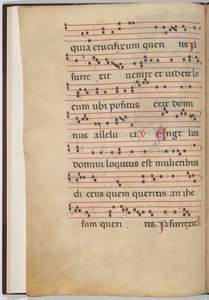 quia crucifixum queri tis ia
surre xit venite et videte lo
cum ubi positus erat domi
nus allelu ia. V Angelus
domini locutus est mulieribus
di cens quem queritis an ihe
sum queri tis. Ia surrexit